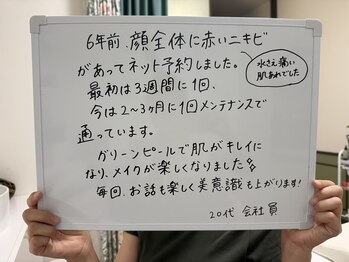 6年前、顔全体に赤いニキビ
があってネット予約しました。
水さえ痛い
肌あれでした
最初は3週間に1回、
今は2~3ヶ月に1回メンテナンスで
通っています。
グリーンピールで肌がキレイに
なり、メイクが楽しくなりました
毎回、お話も楽しく美意識も上がります!
20代 会社員